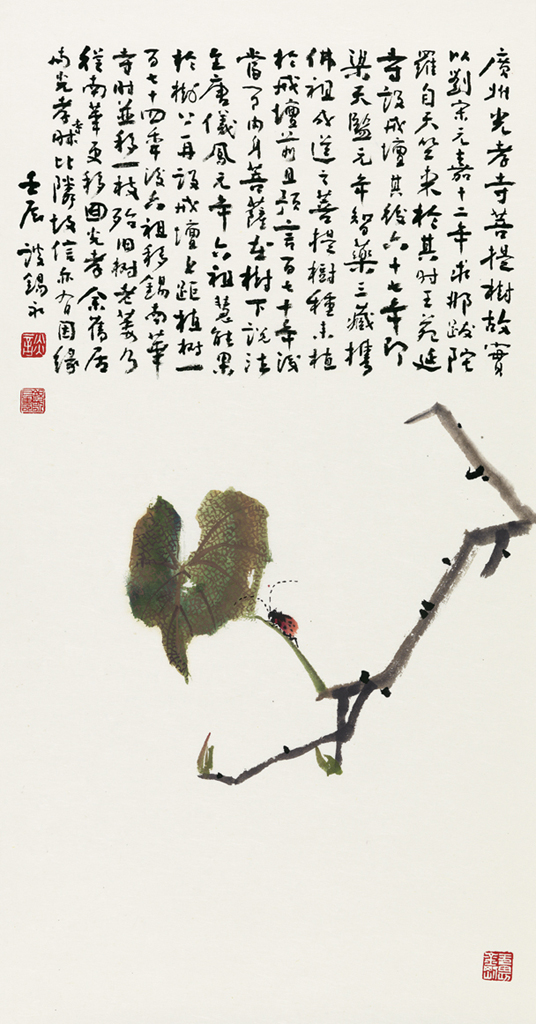 廣州光孝寺菩提樹故實
以劉宋元嘉十二年求那跋陀
羅自天竺來於其時王苑延
寺設戒壇其後六十七年即
梁天監元年智藥三藏攜
佛祖成道之菩提樹種來植
於戒壇前且預言百七十年後
當有肉身菩薩在樹下說法
至唐儀鳳元年六祖慧能果
於樹下再設戒壇上距植樹一
百七十四年後六祖移錫南華
寺時並移一枝殆旧樹老萎乃
從南華更移回光孝余舊居
光孝寺比隣故信亦有因緣
壬辰 談錫永